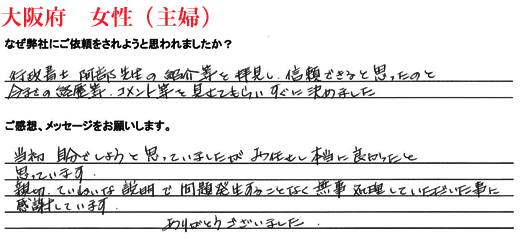 大阪府　女性（主婦）
なぜ弊社にご依頼をされようと思われましたか？
行政書士 阿部先生の紹介等を拝見し、信頼できると思ったのと
今までの経歴等、コメント等を見せてもらいすぐに決めました
ご感想、メッセージをお願いします。
当初 自分でしようと思っていましたが お任せし本当に良かったと
思っています。
親切、ていねいな説明で問題発生することなく無事処理していただいた事に
感謝しています。
ありがとうございました。